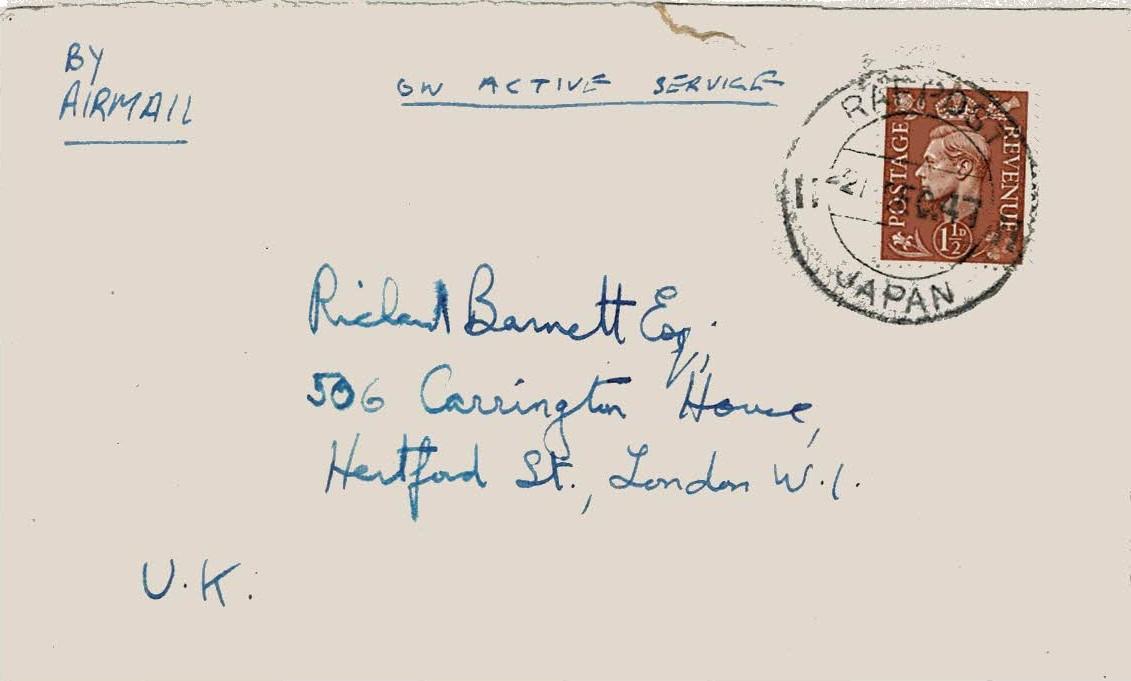 BY
AIRMAIL
ON ACTIVE SERVICE
RAF POST
JAPAN
POSTAGE
REVENUE
1½D
Richard Barnett Esq.,
506 Carrington House,
Hertford St., London W.1.
U.K.